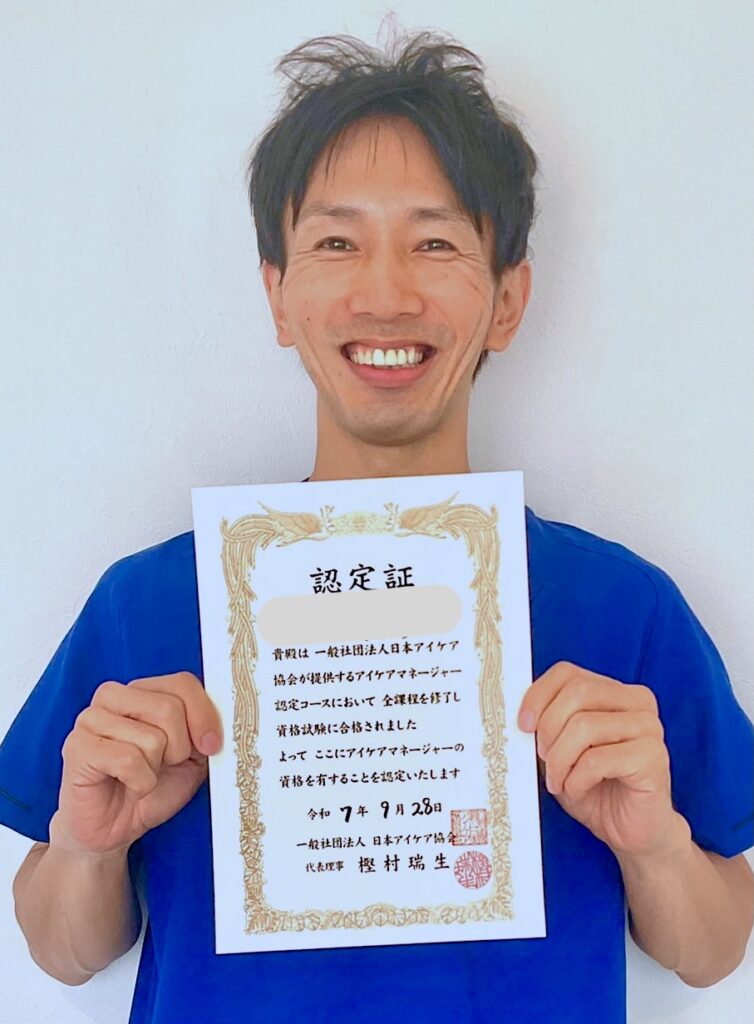 認定証
貴殿は 一般社団法人日本アイケア
協会が提供するアイケアマネージャー
認定コースにおいて 全課程を修了し
資格試験に合格されました
よって ここにアイケアマネージャーの
資格を有することを認定いたします
令和 7年 9月 28日
一般社団法人 日本アイケア協会
代表理事 樫村瑞生